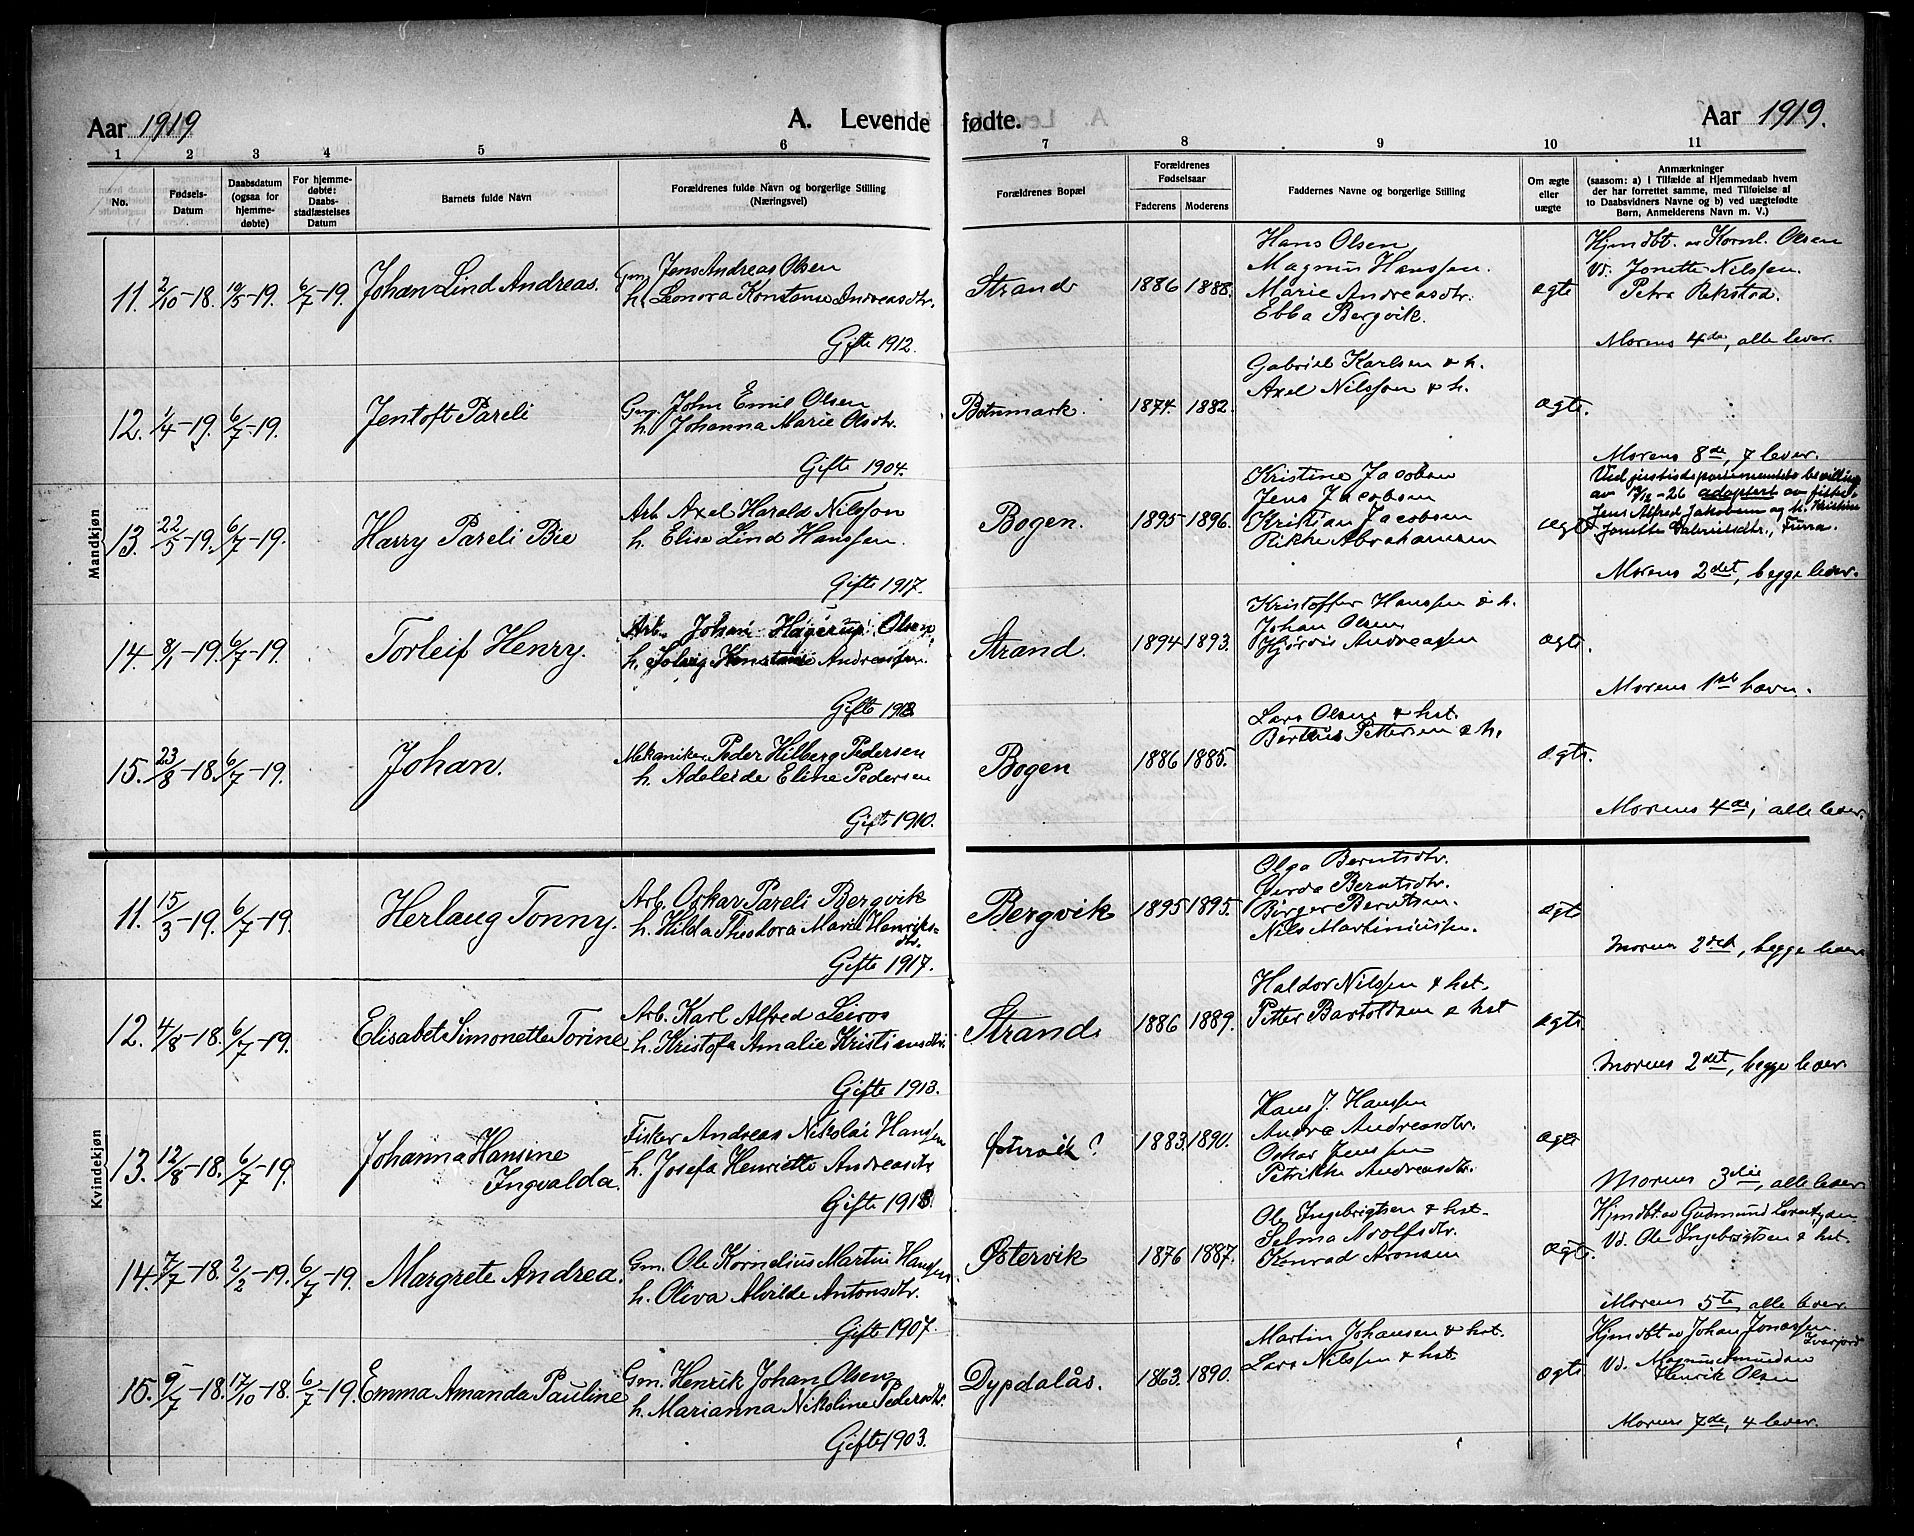 Aar 1919
A. Levende fødte.
Aar 1919.
1 2 3 4 5 6 7 8 9 10 11
No.
Fødsels-
Datum
Daabsdatum
(ogsaa for
hjemme-
døbte)
For hjemme-
døbte:
Daabs-
stadfæstelses
Datum
Barnets fulde Navn
Forældrenes fulde Navn og borgerlige Stilling
(Næringsvei)
Forældrenes Bopæl
Forældrenes
Fødselsaar
Faderens Moderens
Faddernes Navne og borgerlige Stilling
Om ægte
eller
uægte
Anmærkninger
(saasom: a) i Tilfælde af Hjemmedaab hvem
der har forrettet samme, med Tilføielse af
to Daabsvidners Navne og b) ved uægtefødte
Børn, Anmelderens Navn m. V.)
Mandkjøn
11. 2/10-18. 19/5-19. 6/7-19. Johan Lind Andreas.
Gm. Jens Andreas Olsen
h. Leonora Konstanse Andreasdtr.
Gifte 1912.
Strand 1886 1888.
Hans Olsen,
Magnus Hanssen.
Marie Andreasdtr.
Ebba Bergvik.
ægte
Hjemdbt. av Kornl. Olsen
Vd. Jonette Nilssen.
Petra Rekstad.
Morens 4de, alle lever.
12. 1/4-19. 6/7-19. Jentoft Pareli
Gm. John Emil Olsen
h. Johanna Marie Olsdtr.
Gifte 1904.
Botnmark. 1874. 1882.
Gabriel Karlsen & h.
Axel Nilsson & h.
ægte.
Morens 8de, 7 lever.
13. 22/5-19. 6/7-19. Harry Pareli Bie
Arb. Axel Harald Nilsson
h. Elise Lind Hanssen.
Gifte 1917.
Bogen. 1895 1896.
Kristine Jacobsen
Jens Jacobsen
Kristian Jacobsen
Rikke Abrahamsen
ægte
Ved justisdepartementets bevilling
av 17/12-26 adoptert av fisker
Jens Alfred Jakobsen og h. Kristine
Jonette Gabrielsdtr., Furn.
Morens 2det, begge lever.
14. 8/1-19. 6/7-19. Torleif Henry.
Arb. Johan Hagerup Olsen,
h. Solveig Konstanse Andreassen.
Gifte 1918.
Strand. 1894 1893.
Kristoffer Hanssen & h.
Johan Olsen
Hjørdis Andreassen
ægte.
Morens 1ste barn.
15. 23/8-18. 6/7-19. Johan.
Mekaniker Peder Hilberg Pedersen
h. Adeleide Eline Pedersen
Gifte 1910.
Bogen 1886 1885.
Lars Olsen & hst.
Bertheus Pettersen & h.
ægte.
Morens 4de, alle lever.
Kvindekjøn
11. 15/3-19. 6/7-19. Herlaug Tonny.
Arb. Oskar Pareli Bergvik
h. Hilda Theodora Marie Henriks-
dtr.
Gifte 1917.
Bergvik 1895 1895.
Olga Berntsdtr.
Gerda Berntsdtr.
Børger Berntsen.
Nils Martiniussen.
ægte
Morens 2det, begge lever
12. 4/8-18. 6/7-19. Elisabet Simonette Torine
Arb. Karl Alfred Leiros
h. Kristofa Amalie Kristiansdtr.
Gifte 1913.
Strand 1886 1889.
Haldor Nilssen & hst.
Petter Bartoldsen & hst
ægte
Morens 2det, begge lever.
13. 12/8-18. 6/7-19. Johanna Hansine
Ingvalda.
Fisker Andreas Nikolai Hanssen
h. Josefa Henriette Andreasdtr
Østervik? 1883. 1890.
Hans J. Hanssen
Andrea Andreasdtr.
Oskar Jenssen
Petrikke Andreasdtr.
ægte
Morens 3die, alle lever
14. 7/7-18. 2/2-19. 6/7-19. Margrete Andrea.
Gm. Ole Kornelius Martin Hanssen
h. Oliva Alvilde Antonsdtr.
Gifte 1907.
Østervik 1876 1887.
Ole Ingebrigtsen & hst.
Selma Adolfsdtr.
Konrad Aronsen
ægte.
Hjemdbt. av Gudmund
Vd. Ole Ingebrigtsen & hst.
Morens 5te, alle lever.
15. 9/7-18. 17/10-18. 6/7-19. Emma Amanda Pauline
Gm. Henrik Johan Olsen
h. Marianna Nikoline Pedersdtr.
Gifte 1903.
Dypdalås. 1863. 1890.
Martin Johansen & hst.
Lars Nilssen & hst.
ægte
Hjemdbt av Johan Jonassen.
Vd. Magnus Amundsen
Henrik Olsen
Morens 7de, 4 lever.